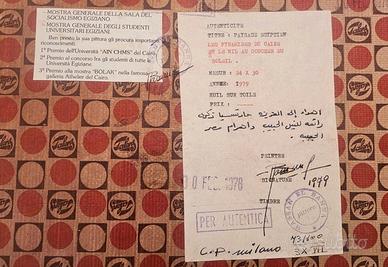 MOSTRA GENERALE DELLA SALA DEL
SOCIALISMO EGIZIANO
MOSTRA GENERALE DEGLI STUDENTI
UNIVERSITARI EGIZIANI.
Ben presto la sua pittura gli procura importanti
riconoscimenti:
1° Premio dell'Università "AIN CHMS" del Cairo.
2° Premio al concorso fra gli studenti di tutte le
Università Egiziane.
3° Premio alla mostra "BOLAR" nella famosa
galleria Atheler del Cairo.
AUTENTICITE
TITRE : PAISAGE EGYPTIAN
LES PYRAMIDES DU CAIRE
ET LE NIL AU COUCHER DU
SOLEIL.
MESUR : 24 X 30
ANNEE: 1979
HUIL SUR TOILE
PRIX :
رائعه للنيل الحبيب واهرام مصر
الحبيبه
PEINTRE
SIGNATURE
1979
FEB. 1978
TIMBRE
PER AUTENTICA
C.P. milano